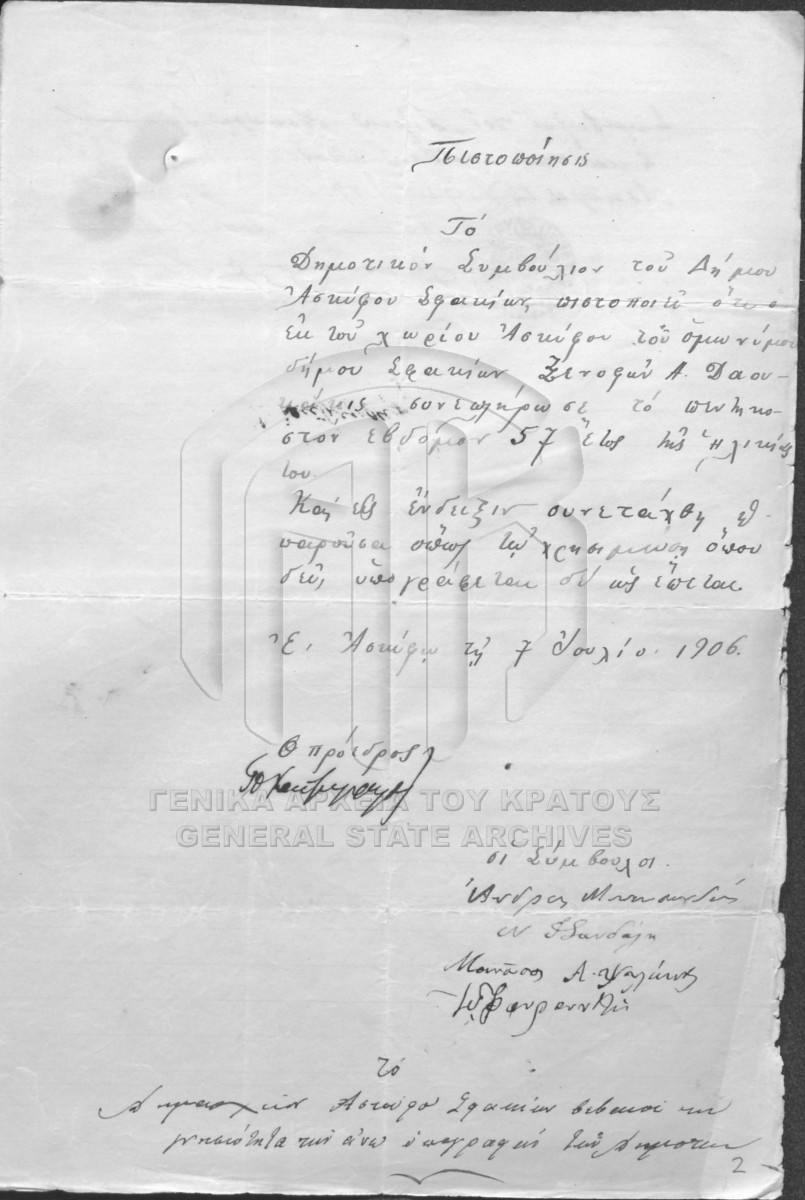 Πιστοποίησις
Τό
Δημοτικόν Συμβούλιον τοῦ Δήμου
Ἀσκύφου Σφακίων, πιστοποιεῖ ὅτι ο
ἐκ τοῦ χωρίου Ἀσκύφου τοῦ ὁμωνύμου
δήμου Σφακίων Ξενοφῶν Α. Δαου-
συνεπλήρωσε τό πεντηκο-
στόν εβδόμον 57 ἔτος τῆς ἡλικίας
του.
Καί εἰς ἔνδειξιν συνετάχθη ἡ
παροῦσα ὅπως τῷ χρησιμεύσῃ ὅπου
δεῖ, ὑπογράφεται δέ ὡς ἕπεται.
Ἐν Ἀσκύφῳ τῇ 7 Ἰουλίου 1906.
Ο πρόεδρος
ΓΕΝΙΚΑ ΑΡΧΕΙΑ ΤΟΥ ΚΡΑΤΟΥΣ
GENERAL STATE ARCHIVES
οἱ Σύμβουλοι.
Ἀνδρέας
Α.
τό
Δημαρχεῖον Ἀσκύφου Σφακίων βεβαιοῖ τήν
γνησιότητα τῶν ἄνω ὑπογραφῶν τῶν Δημοτικῶν
2